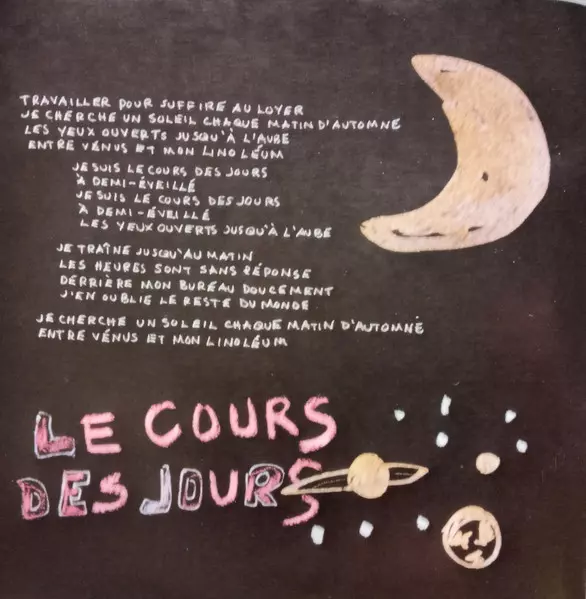 TRAVAILLER POUR SUFFIRE AU LOYER
JE CHERCHE UN SOLEIL CHAQUE MATIN D'AUTOMNE
LES YEUX OUVERTS JUSQU'À L'AUBE
ENTRE VÉNUS ET MON LINOLÉUM
JE SUIS LE COURS DES JOURS
À DEMI-ÉVEILLÉ
JE SUIS LE COURS DES JOURS
À DEMI-ÉVEILLÉ
LES YEUX OUVERTS JUSQU'À L'AUBE
JE TRAÎNE JUSQU'AU MATIN
LES HEURES SONT SANS RÉPONSE
DERRIÈRE MON BUREAU DOUCEMENT
J'EN OUBLIE LE RESTE DU MONDE
JE CHERCHE UN SOLEIL CHAQUE MATIN D'AUTOMNE
ENTRE VÉNUS ET MON LINOLÉUM
LE COURS
DES JOURS